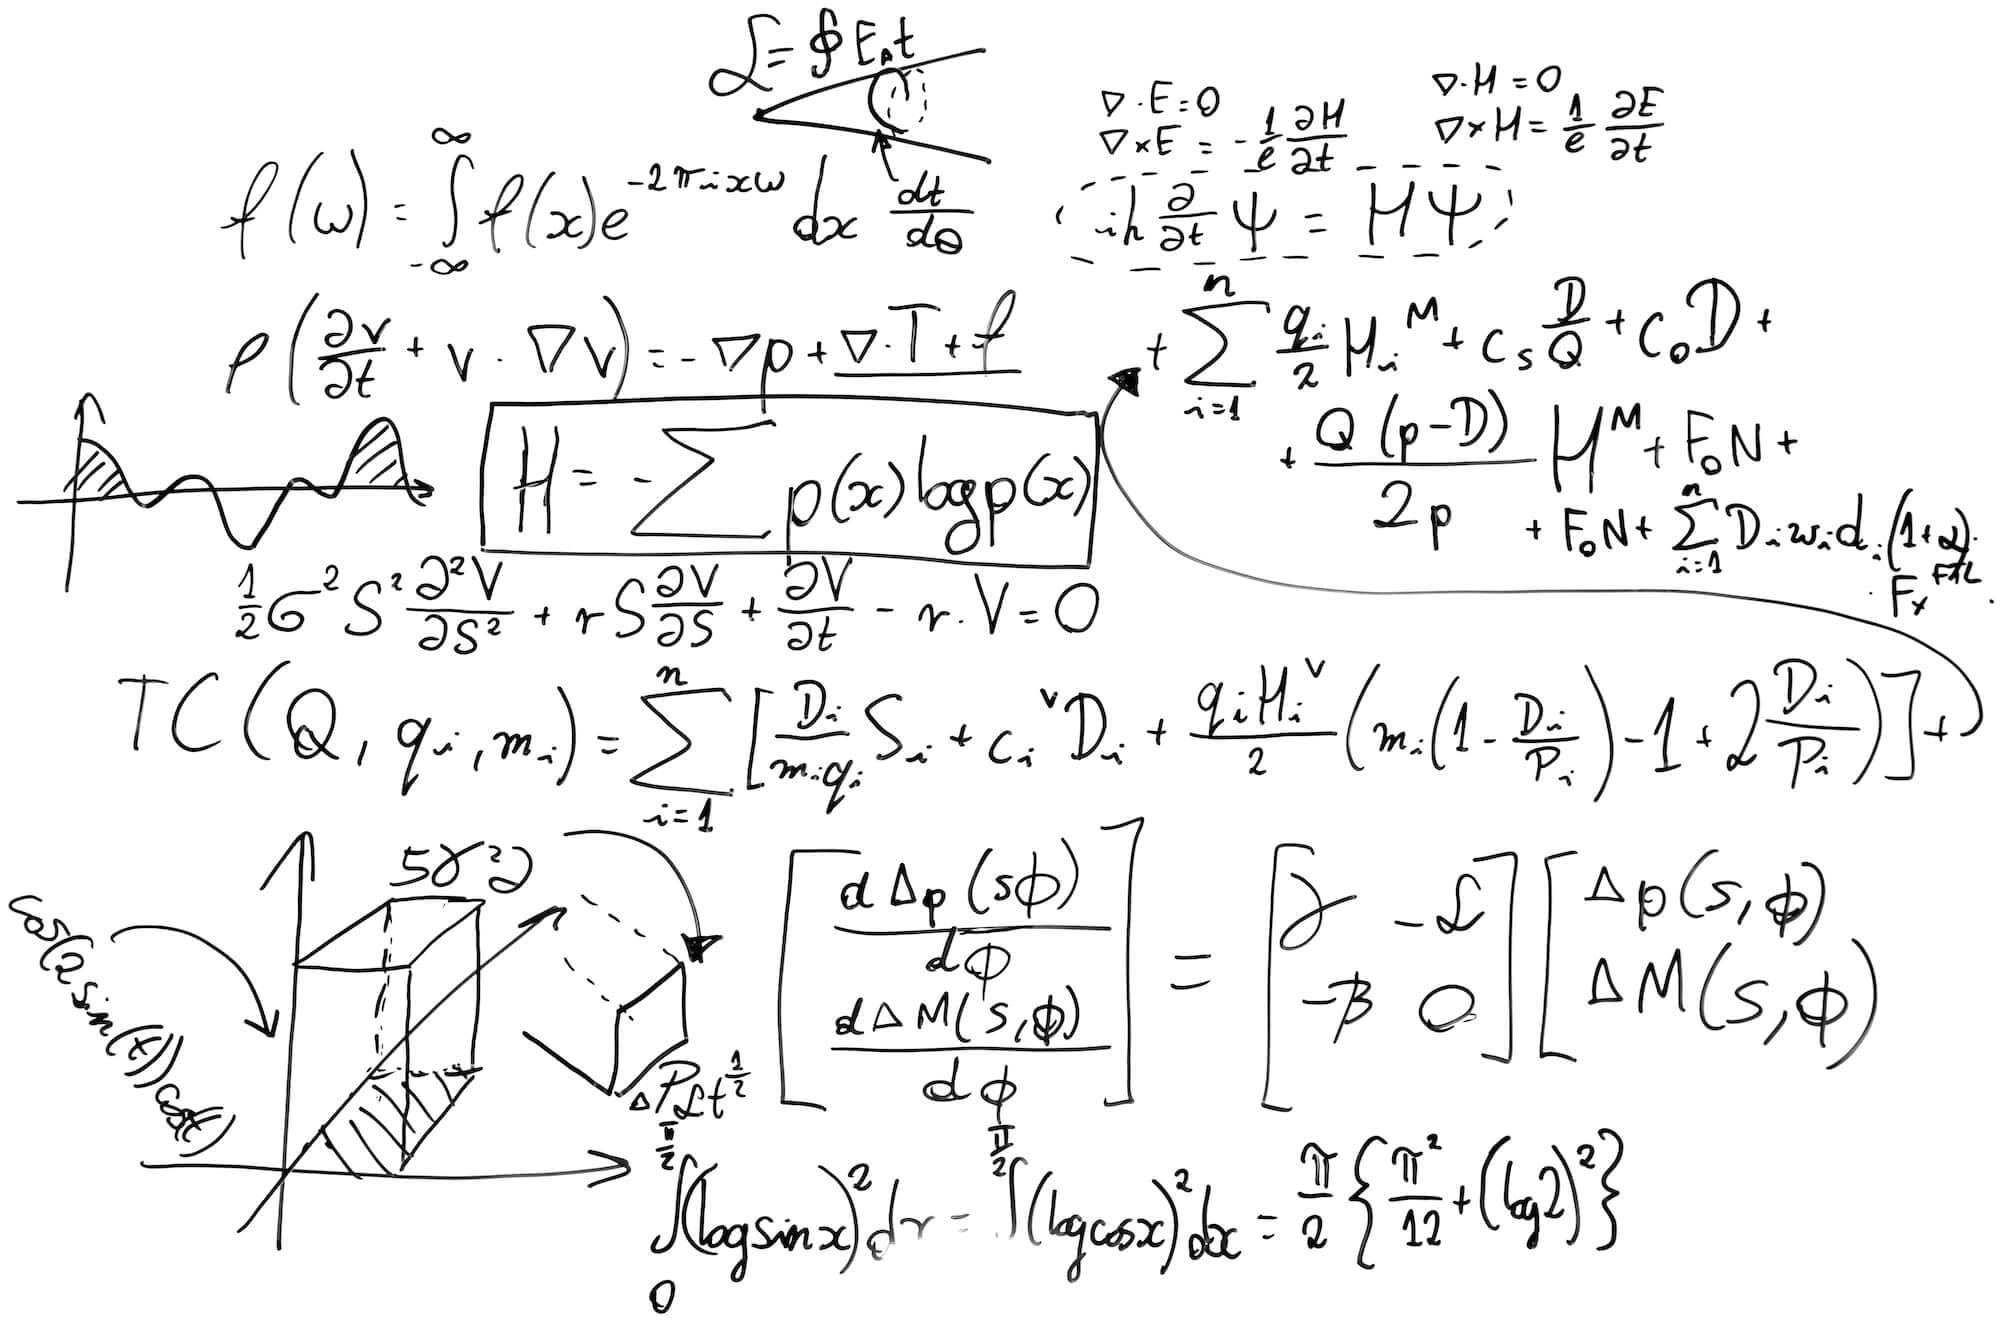 ℒ = ∮ E₀ t
∇·E = 0
∇×E = -1/e ∂H/∂t
∇·H = 0
∇×H = 1/e ∂E/∂t
f(ω) = ∫_{-∞}^{∞} f(x)e^{-2πixω} dx
dt/dθ
iħ ∂/∂t Ψ = HΨ
ρ(∂v/∂t + v·∇v) = -∇p + ∇·T + f
H = -∑ p(x) log p(x)
+ ∑_{i=1}^{n} q_i/2 H_i^M + c_s D/Q + c_0 D +
+ Q(p-D)/2p H^M + F_0 N +
+ F_0 N + ∑_{i=1}^{n} D_i w_i d_i (1+α)
F_x FTL
1/2 σ² S² ∂²V/∂S² + r S ∂V/∂S + ∂V/∂t - r·V = 0
TC(Q, q_i, m_i) = ∑_{i=1}^{n} [D_i/(m_i q_i) S_i + c_i^v D_i + q_i H_i^v/2 (m_i(1 - D_i/P_i) - 1 + 2 D_i/P_i)] +
5 γ²
cos(2 sin(x))
[dΔp(sϕ)/dϕ dΔM(s,ϕ)/dϕ] = [γ -ℒ -β 0] [Δp(s,ϕ) ΔM(s,ϕ)]
ΔPℒt^{1/2}
∫_{0}^{π/2} (log sin x)² dx = ∫^{π/2} (log cos x)² dx = π/2 {π²/12 + (log 2)²}